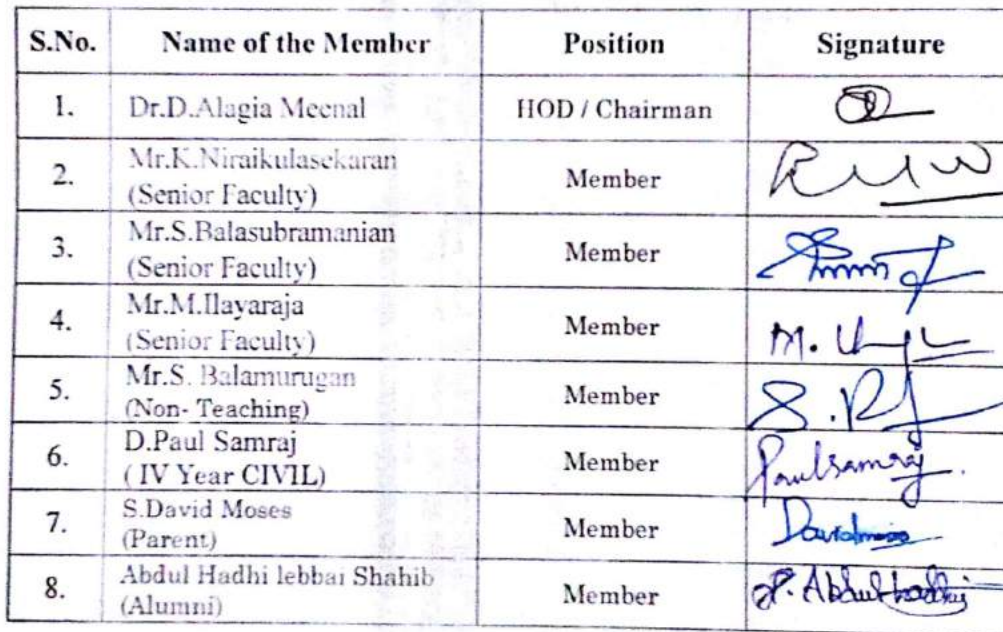 S.No. Name of the Member Position Signature
1. Dr.D.Alagia Meenal HOD / Chairman
2. Mr.K.Niraikulasekaran
(Senior Faculty) Member
3. Mr.S.Balasubramanian
(Senior Faculty) Member
4. Mr.M.Ilayaraja
(Senior Faculty) Member M.
5. Mr.S. Balamurugan
(Non- Teaching) Member S.
6. D.Paul Samraj
( IV Year CIVIL) Member Paulsamraj
7. S.David Moses
(Parent) Member
8. Abdul Hadhi lebbai Shahib
(Alumni) Member